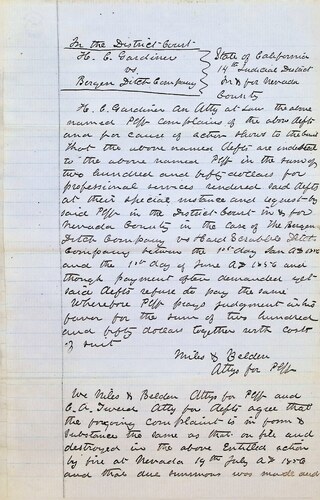 In the District Court
H. C. Gardiner
vs.
Bergen Ditch Company
State of California
14th Judicial District
In & for Nevada
County
H. C. Gardiner An Atty at Law the above
named Plff complains of the above Defts
and for cause of action shows to the Court
that the above named Defts are indebted
to the above named Plff in the sum of
two hundred and fifty dollars for
professional services rendered said defts
at their special instance and request by
said Plff in the District Court in & for
Nevada County in the case of The Bergen
Ditch Company vs Hard Scrabble Ditch
Company between the 1st day Jan AD 1856
and the 1st day of June AD 1856 and
though payment often demanded yet
said Defts refuse to pay the same
Wherefore Plff prays judgment in his
favor for the sum of two hundred
and fifty dollars together with cost
of suit
Miles & Belden
Attys for Plff
We Miles & Belden Attys for Plff and
C. A. Tweed Atty for Defts agree that
the forgoing complaint is in form &
Substance the same as that on file and
destroyed in the above Entitled action
by fire at Nevada 19th July AD 1856
and that due summons was made and